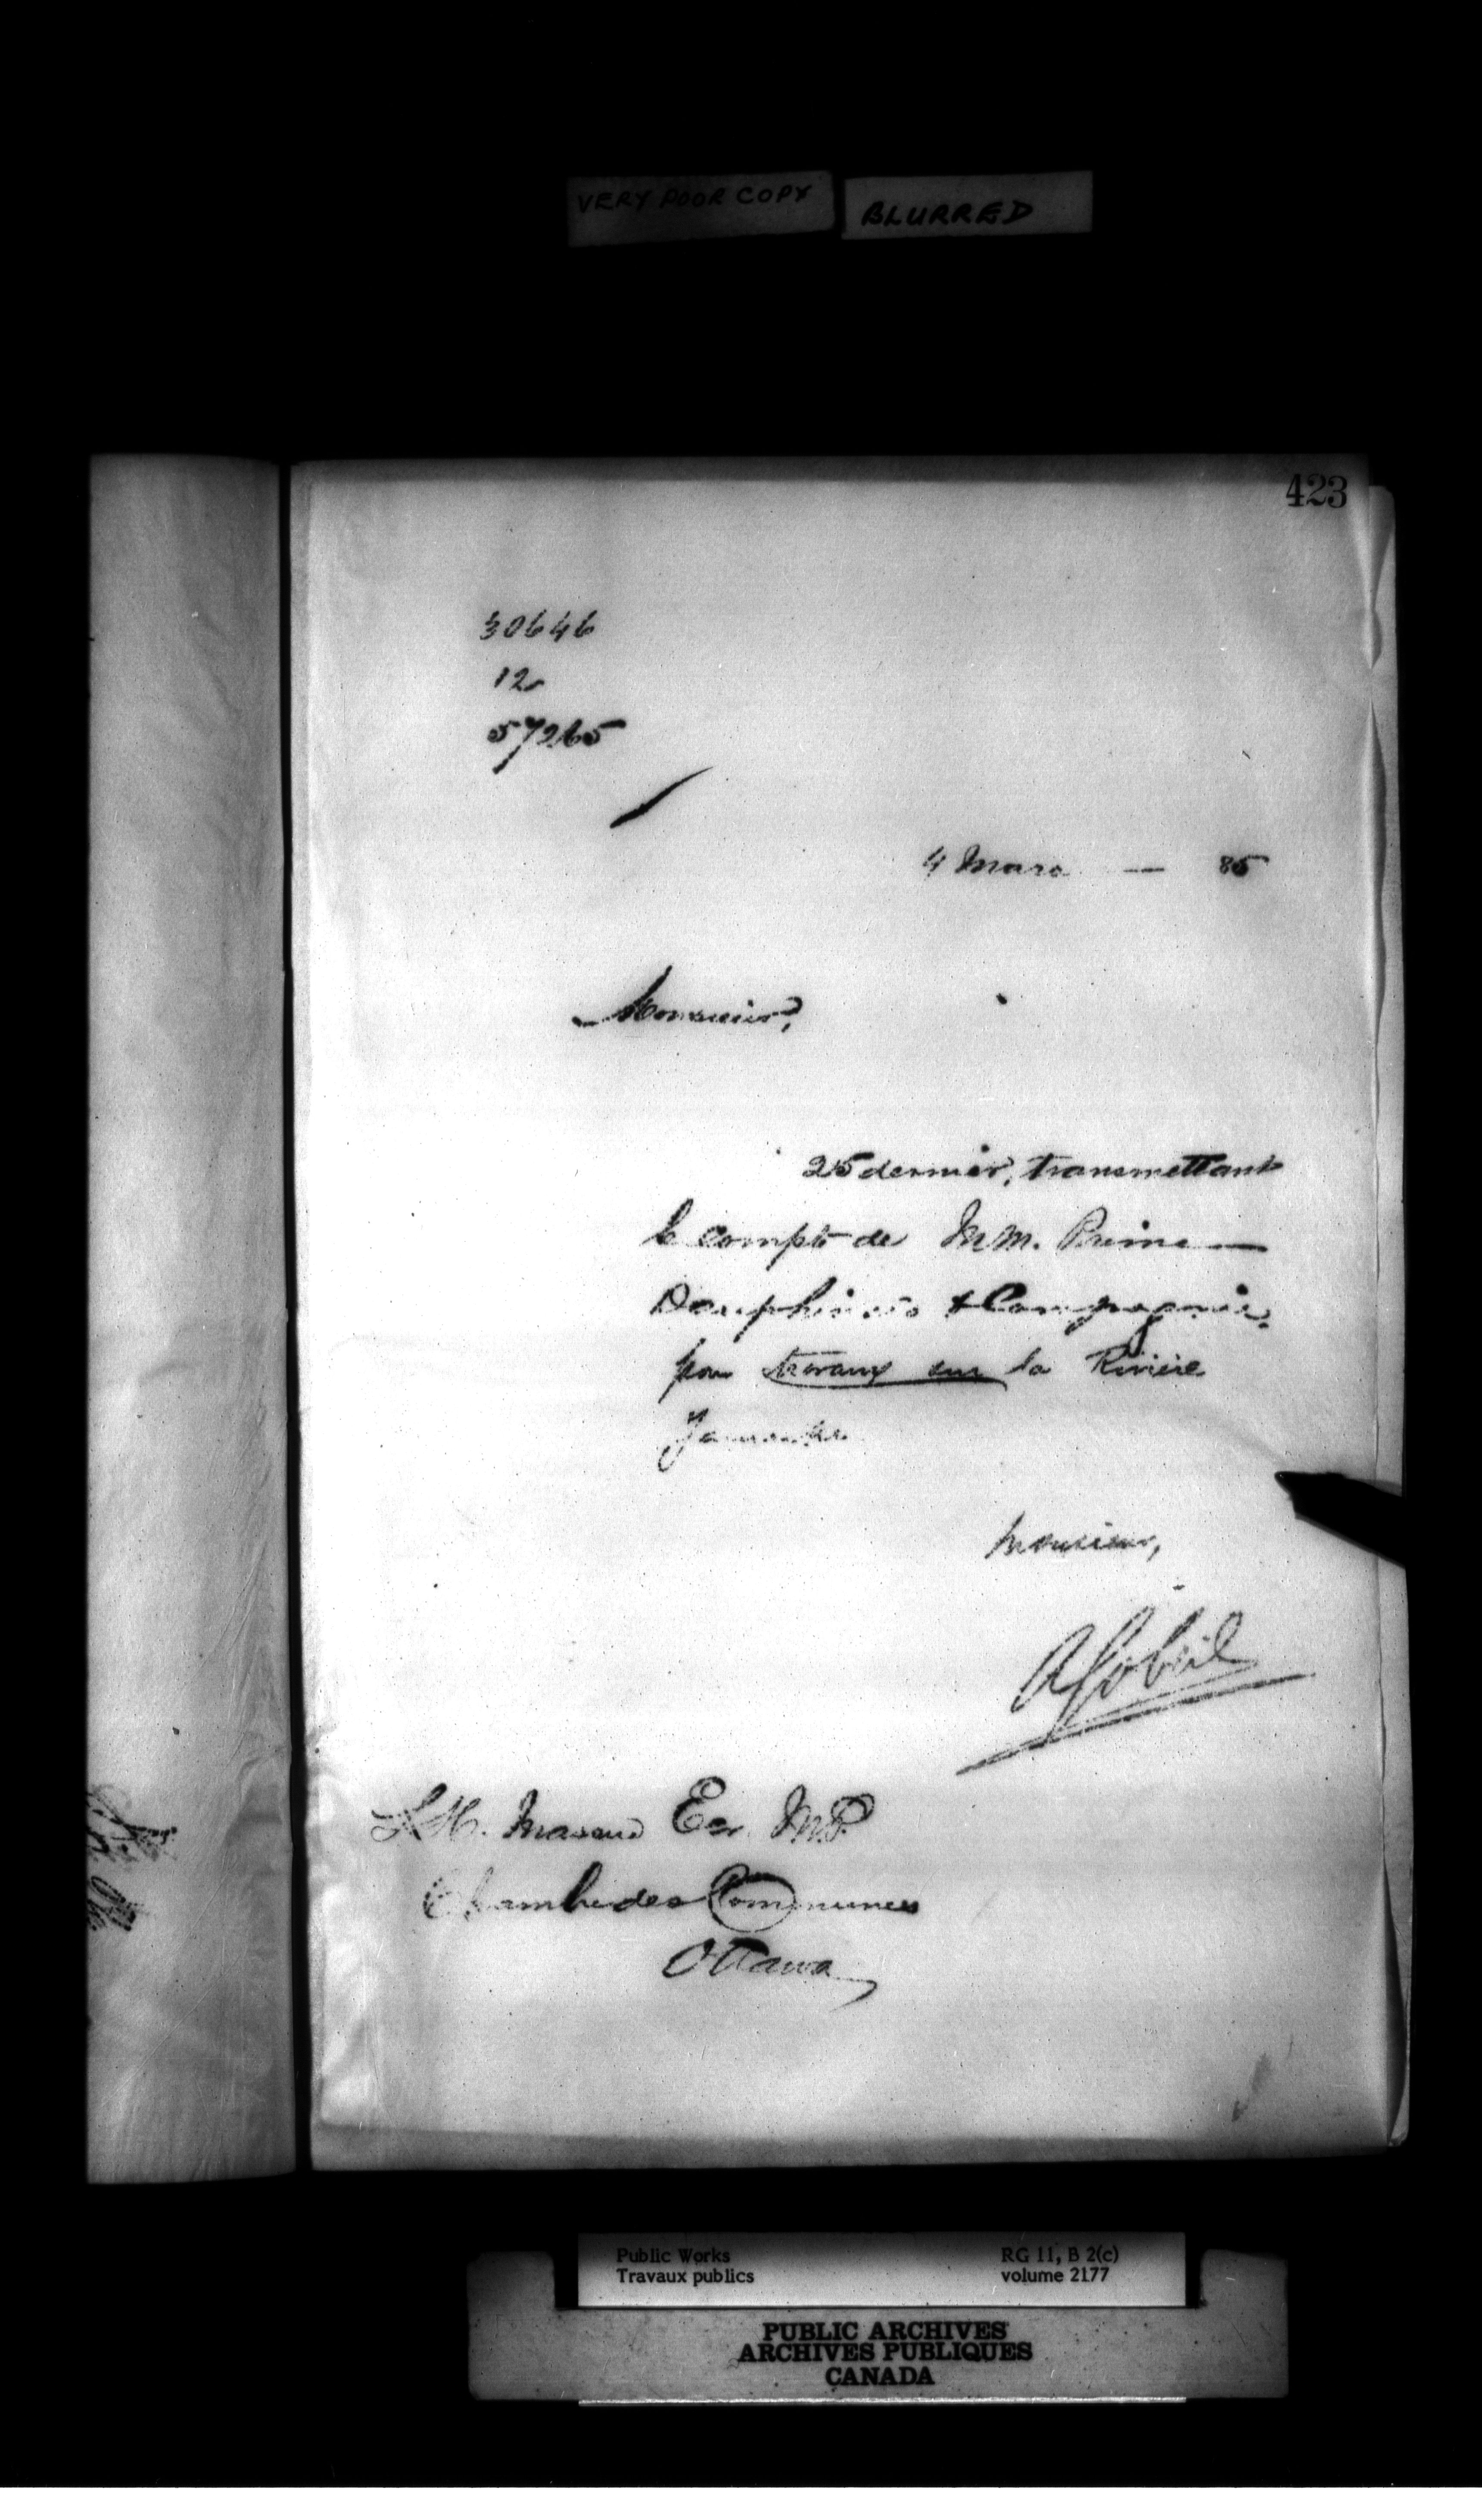 VERY POOR COPY BLURRED
423
30646
12
57265
4 Mars — 85
Monsieur,
25 dernier, transmettant
le compte de MM. Prime —
Dauphinais & Compagnie.
pour travaux sur la Rivière
Yamaska
Monsieur,
A Gobeil
Massue Esr. M.P.
Chambre des Communes
Ottawa
Public Works RG 11, B 2(c)
Travaux publics volume 2177
PUBLIC ARCHIVES
ARCHIVES PUBLIQUES
CANADA